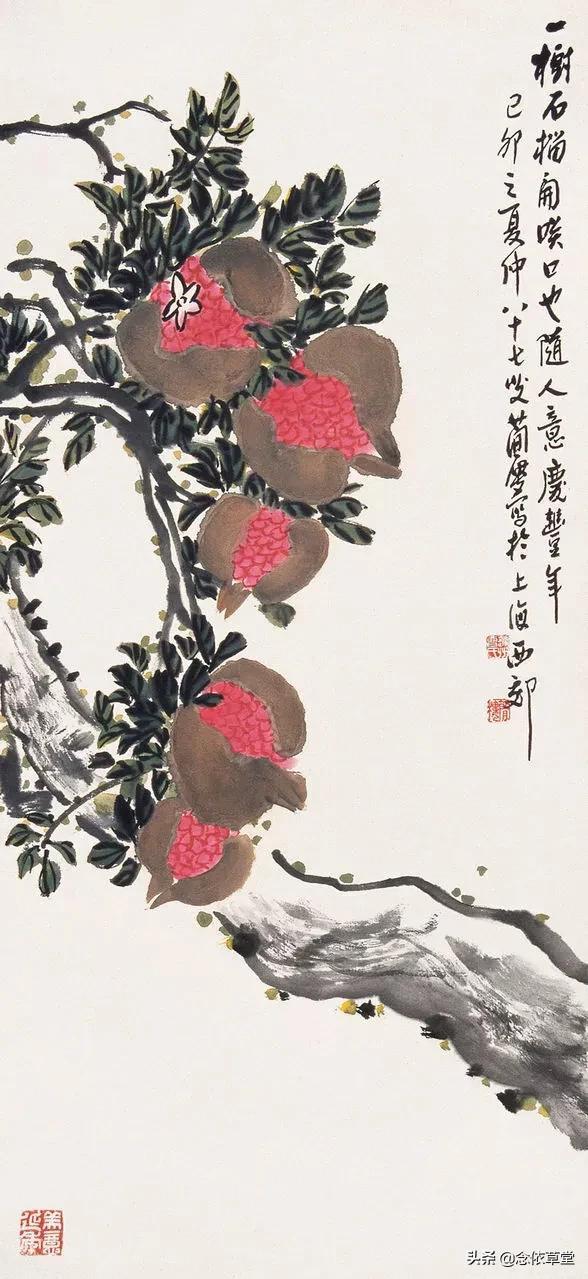 一樹石榴開咲口也隨人意慶豐年
己卯之夏仲八十七叟蕑廔寫於上海西郊
美意延年
头条 @念依草堂